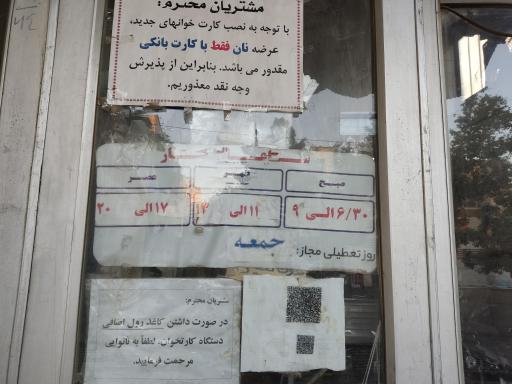 مشتریان محترم:
با توجه به نصب کارت خوانهای جدید،
عرضه نان فقط با کارت بانکی
مقدور می باشد. بنابراین از پذیرش
وجه نقد معذوریم.
صبح ظهر عصر
۶/۳۰ الی ۹ ۱۱ الی ۳ ۱۷ الی ۲۰
روز تعطیلی مجاز: جمعه
مشتریان محترم:
در صورت داشتن کاغذ رول اضافی
دستگاه کارتخوان، لطفاً به نانوایی
مرحمت فرمایید.